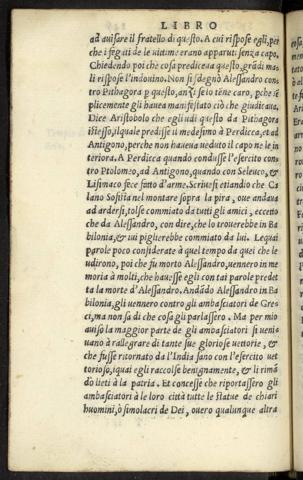 LIBRO
ad auisare il fratello di questo. A cui rispose egli, per
che i fegati de le uittime erano apparuti senza capo.
Chiedendo poi che cosa prediceua questo, grādi ma-
li rispose l'indouino. Non si sdegnò Alessandro cons
tro Pithagora p questo, anzi se lo tēne caro, pche sē
plicemente gli haueua manifestato ciò che giudicaua.
Dice Aristobolo che egli udì questo da Pithagora
istesso, il quale predisse il medesimo à Perdicca, et ad
Antigono, perche non haueua ueduto il capo ne le in
teriora. A Perdicca quando condusse l'esercito cons
tro Ptolomeo, ad Antigono, quando con Seleuco, &
Lisimaco fece fatto d'arme. Scriuesi etiandio che Ca
lano Sofista nel montare sopra la pira, oue andaua
ad ardersi, tolse commiato da tutti gli amici, eccetto
che da Alessandro, con dire, che lo trouerebbe in Ba
bilonia, & iui piglierebbe commiato da lui. Lequai
parole poco considerate à quel tempo da quei che le
udirono, poi che fu morto Alessandro, uennero in me
moria à molti, che hauesse egli con tai parole predet
ta la morte d'Alessandro. Andādo Alessandro in Ba
bilonia, gli uennero contro gli ambasciatori de Gre=
ci, ma non sa di che cosa gli parlassero. Ma per mio
auiso la maggior parte de gli ambasciatori si ueni=
uano à rallegrare di tante sue gloriose uettorie, &
che fusse ritornato da l'India sano con l'esercito uet
torioso, iquai egli raccolse benignamente, & li rimā
dò lieti à la patria. Et concesse che riportassero gli
ambasciatori à le loro città tutte le statue de chiari
huomini, ò simolacri de Dei, ouero qualunque altra